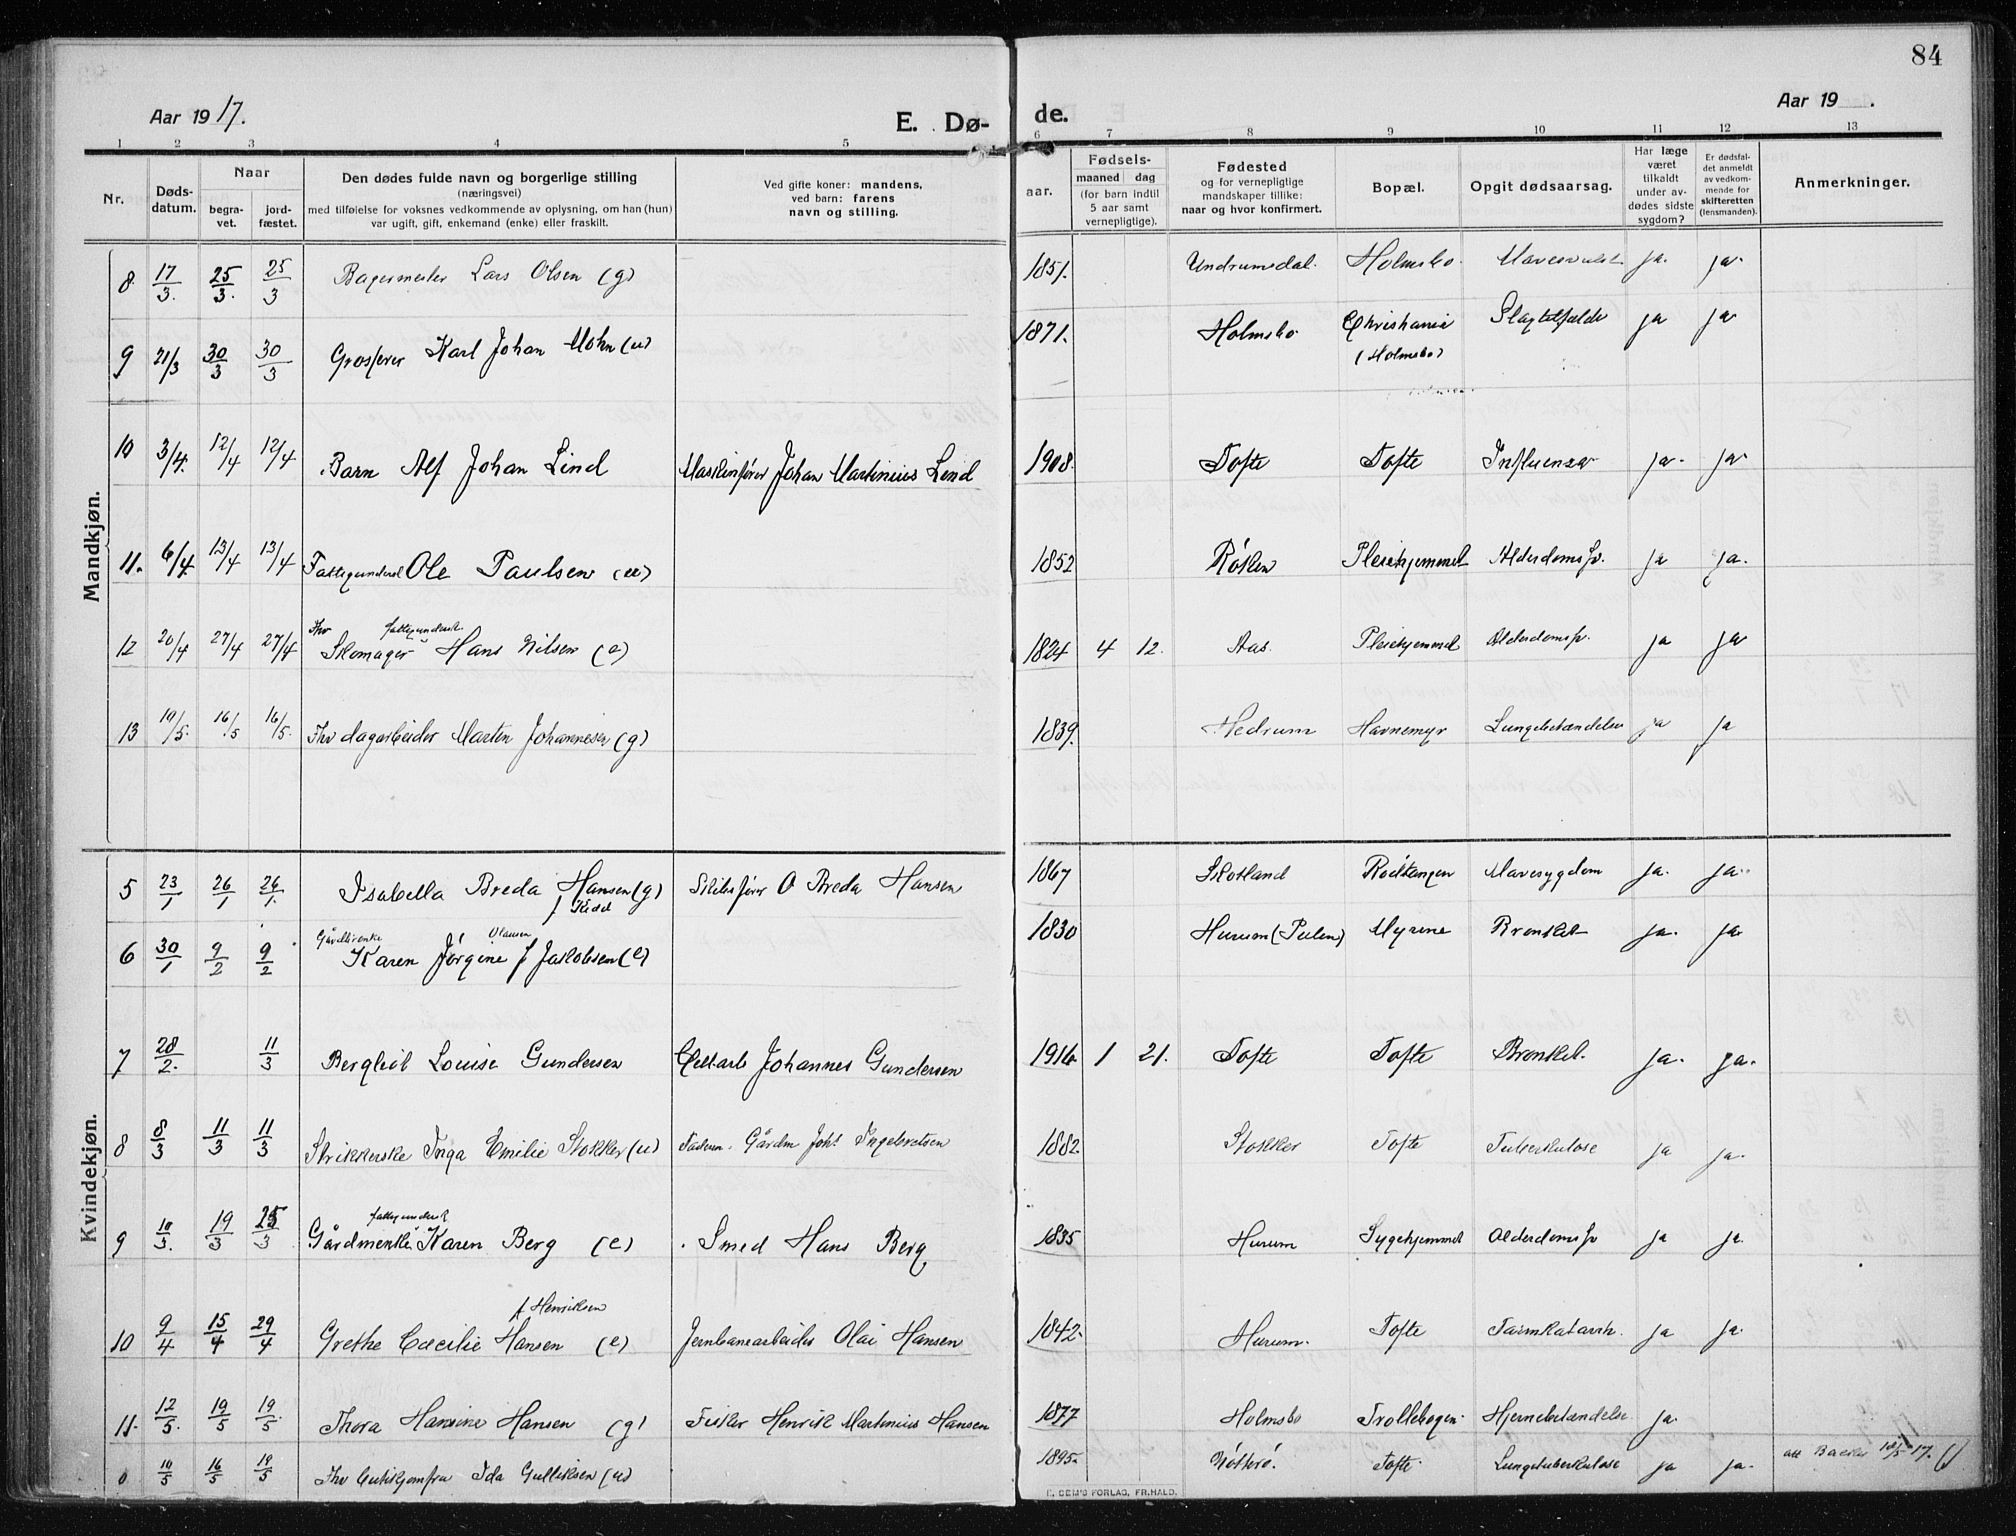 84
Aar 1917.
E. Dø-
de.
Aar 19 .
1 2 3 4 5 6 7 8 9 10 11 12 13
Nr.
Døds-
datum.
Naar
begra-
vet.
jord-
fæstet.
Den dødes fulde navn og borgerlige stilling
(næringsvei)
med tilføielse for voksnes vedkommende av oplysning, om han (hun)
var ugift, gift, enkemand (enke) eller fraskilt.
Ved gifte koner: mandens,
ved barn: farens
navn og stilling.
aar.
Fødsels-
maaned dag
(for barn indtil
5 aar samt
vernepligtige).
Fødested
og for vernepligtige
mandskaper tillike:
naar og hvor konfirmert.
Bopæl.
Opgit dødsaarsag.
Har læge
været
tilkaldt
under av-
dødes sidste
sygdom?
Er dødsfal-
det anmeldt
av vedkom-
mende for
skifteretten
(lensmanden).
Anmerkninger.
Mandkjøn.
8 17/3. 25/3. 25/3 Bagermester Lars Olsen (g) 1851. Undrumsdal. Holmsbo. Mavesvulst ja. ja.
9 21/3 30/3 30/3 Grosserer Karl Johan Mohn (u) 1871. Holmsbo Christiania Slagtilfælde ja ja
(Holmsbo)
10 3/4. 12/4 12/4 Barn Alf Johan Lind Maskinfører Johan Martinius Lind 1908. Tofte Tofte Influensa ja. ja
11. 6/4. 13/4 13/4 Fattigunderst Ole Paulsen 1852 Røken Pleiehjemmet Alderdomssv. ja ja.
12 20/4 27/4 27/4 Fhv fattigunderst.
Skomager Hans Nilsen (e) 1824 4 12. Aas. Pleiehjemmet Alderdomssv. ja ja
13 16/5 16/5. Fhv dagarbeider Marten Johannesen (g) 1839. Hedrum Havnemyr Lungebetændelse ja ja
Kvindekjøn.
5 23/1 26/1 26/1. Isabella Breda Hansen (g) Skibsfører O Breda Hansen 1867 Skotland Rødtangen Mavesygdom ja. ja.
6 30/1 9/2 9/2 Gårdbrenke Olausen
Karen Jørgine f Jakobsen (e) 1830 Hurum Myrene Bronkit ja. ja.
7 28/2. 11/3 Bergliot Louise Gundersen Johannes Gundersen 1916 1 21. Tofte Tofte Bronkit. ja. ja.
8 8/3 11/3 11/3 Strikkerske Inga Emilie Stokker (u) Faderen. Gårdm Johs Ingebretsen 1882. Stokker Tofte Tuberkulose ja ja.
9 10/3. 19/3 25/3 fattigunderst
Gårdmenke. Karen Berg (e) Smed Hans Berg 1835 Hurum Sygehjemmet Alderdomssv ja ja.
10 9/4 15/4 29/4 f Henriksen
Grethe Cæcilie Hansen (e) Jernbanearbeider Olai Hansen 1842. Hurum. Tofte Tarmkatarrh. ja ja.
11. 12/5. 19/5 19/5. Thora Hansine Hansen (g) Fisker Henrik Martinius Hansen 1877 Holmsbo Trollebogen. Hjernebetændelse. ja.
10/5 16/5 19/5 Fhv Ida Gulliksen (u) 1895. Nøtterø. Tofte Lungetuberkulose ja ja. att 18/5 17.
E. SEM'S FORLAG, FR.HALD.